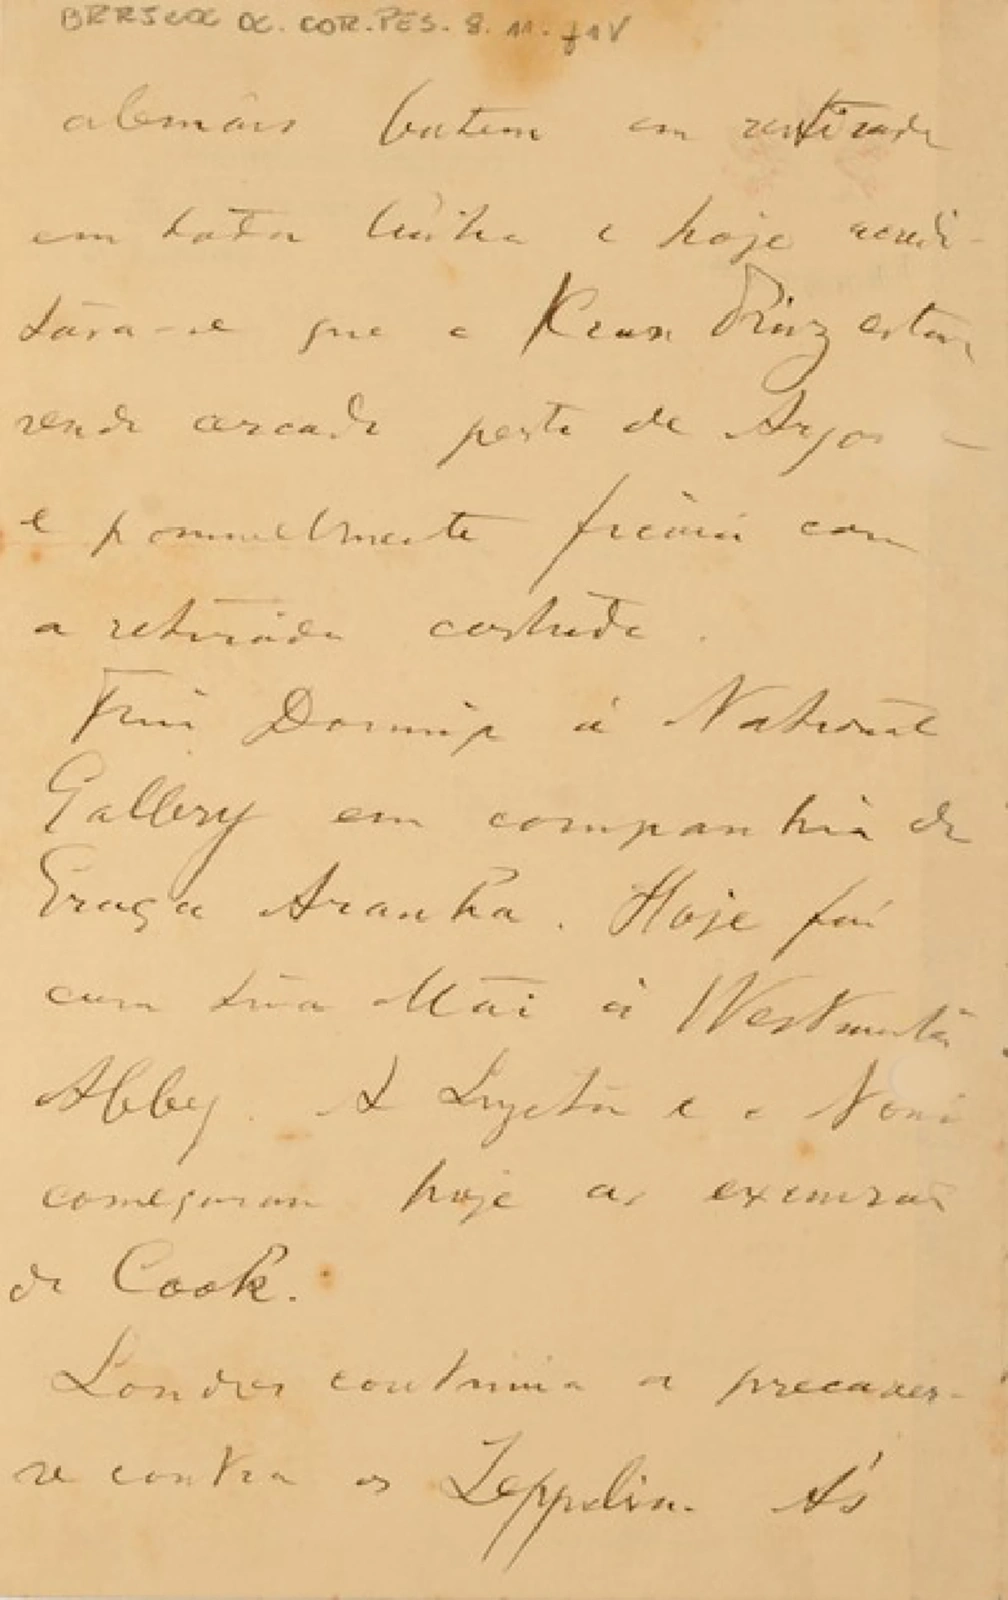 BRRJCOC OC. COR. PES. 8. 11. f1V
alemães batem em retirada
em toda linha e hoje acredi-
tava-se que o Kron Prinz estava
sendo cercado perto de Argos —
e possivelmente ficará com
a retirada cortada.
Fui Domingo á National
Gallery em companhia de
Graça Aranha. Hoje fui
com tua Mãi á Westminster
Abbey. A Lygia e o Noni
começaram hoje as excursões
de Cook.
Londres continua a precaver-
se contra os Zeppelin. Ás